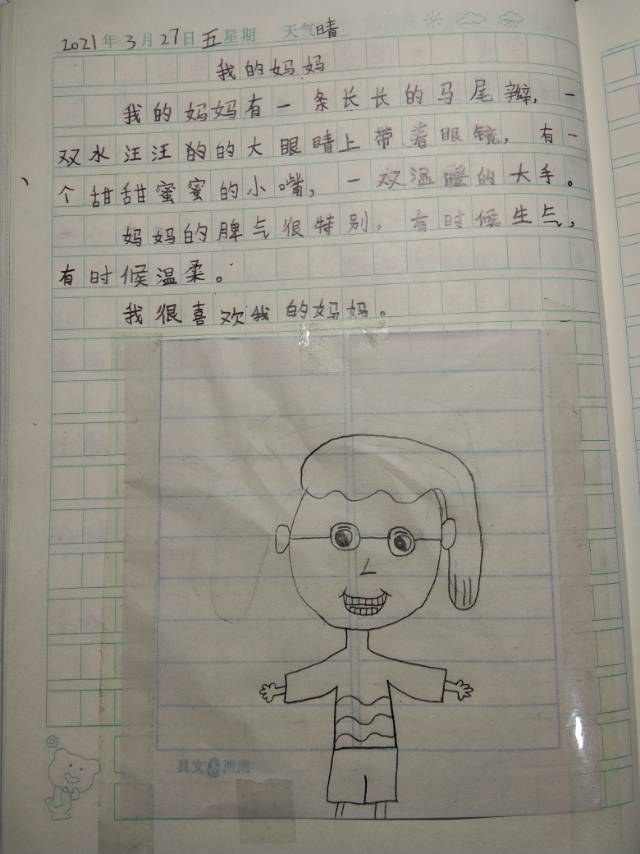 2021年3月27日五星期 天气晴
我的妈妈
我的妈妈有一条长长的马尾辫,一
双水汪汪的的大眼睛上带着眼镜,有一
个甜甜蜜蜜的小嘴,一双温暖的大手。
妈妈的脾气很特别,有时候生气,
有时候温柔。
我很喜欢我的妈妈。